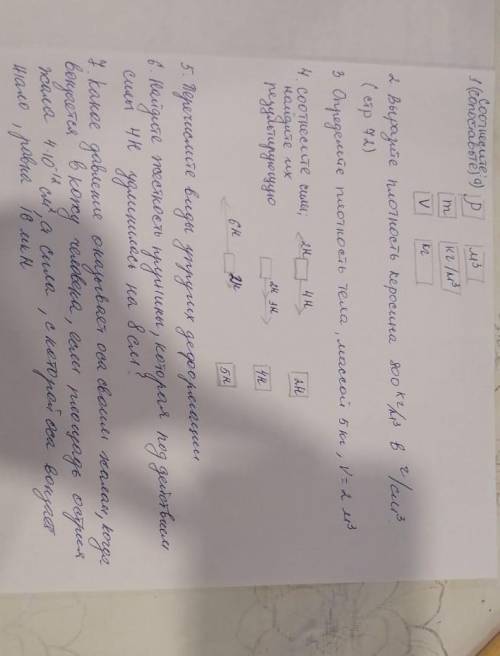 Соотнедите
1 (сопоставьте) а)
ρ м³
m кг/м³
V кг
2 Выразите плотность керосина 800 кг/м³ в г/см³.
(стр 72)
3 Определите плотность тела, массой 5 кг, V = 2 м³
4. Соотнесите силы,
найдите их
результирующую
2H 4H 2H
2H 3H 4H
6H 2H 5H
5. Перечислите виды упругих деформации
6. Найдите жесткость пружины, которая под действием
силы 4H удлинилась на 8 см?
7. Какое давление оказывает оса своим жалом, когда
вонзается в кожу человека, если площадь острия
жала 4·10⁻¹² см², а сила, с которой оса вонзает
жало, равна 16 мкН